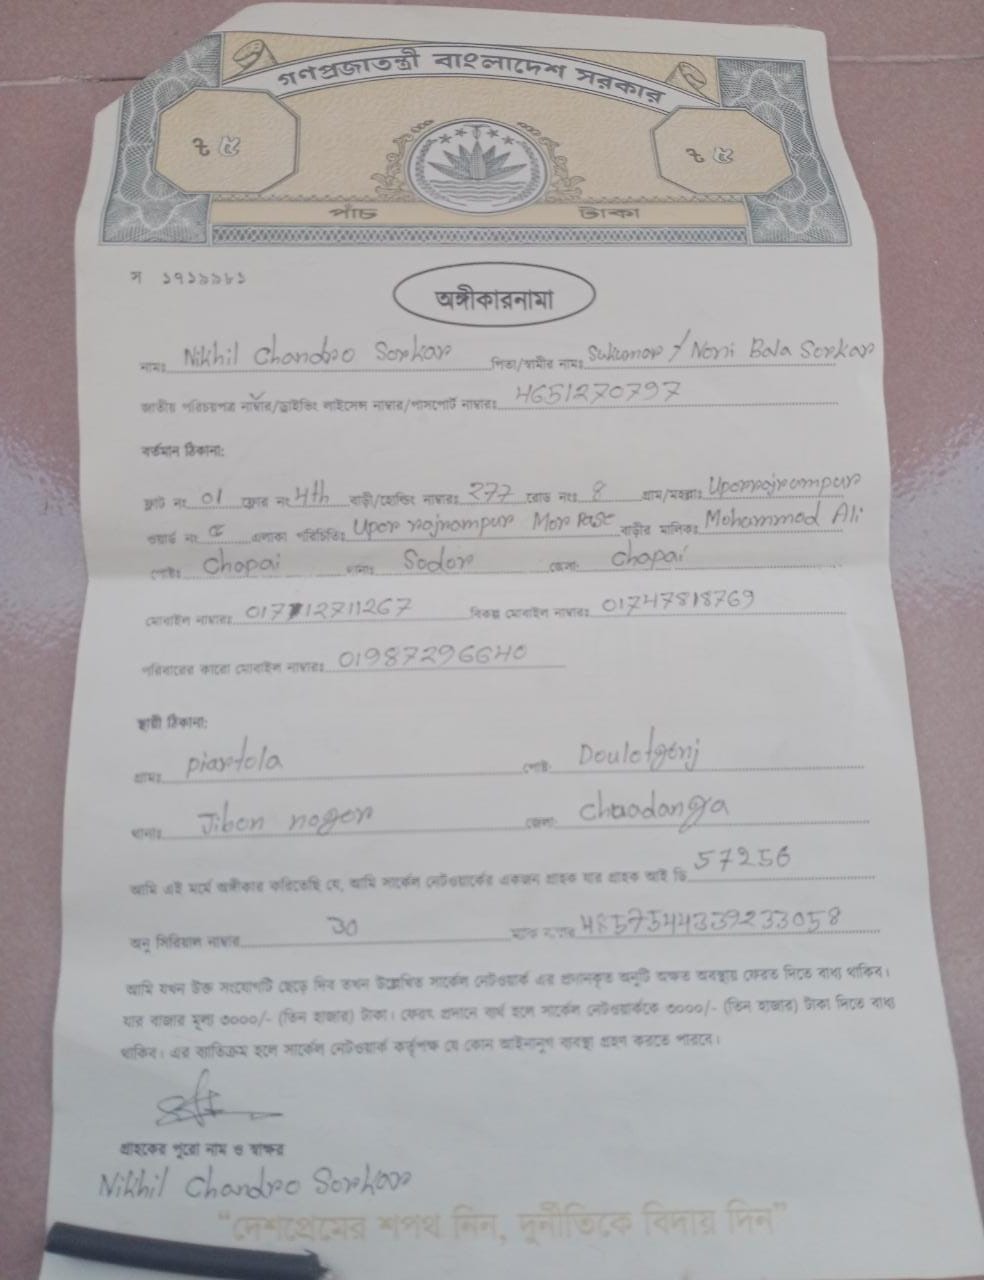 গণপ্রজাতন্ত্রী বাংলাদেশ সরকার
৳ ৫ ৳ ৫
পাঁচ টাকা
স ১৭১৯৯৮১
অঙ্গীকারনামা
নামঃ Nikhil Chandro Sorkar পিতা/স্বামীর নামঃ Sukumar / Noni Bala Sorkar
জাতীয় পরিচয়পত্র নাম্বার/ড্রাইভিং লাইসেন্স নাম্বার/পাসপোর্ট নাম্বারঃ 4651270797
বর্তমান ঠিকানা:
ফ্লাট নং 01 ফ্লোর নং 4th বাড়ী/হোল্ডিং নাম্বারঃ 277 রোড নংঃ 8 গ্রাম/মহল্লাঃ Uporrajrampur
ওয়ার্ড নং ৫ এলাকা পরিচিতিঃ Upor rajrampur Mor Pase বাড়ীর মালিকঃ Mohammod Ali
পোষ্টঃ Chapai থানাঃ Sodor জেলা: Chapai
মোবাইল নাম্বারঃ 01712711267 বিকল্প মোবাইল নাম্বারঃ 01747818769
পরিবারের কারো মোবাইল নাম্বারঃ 01987296640
স্থায়ী ঠিকানা:
গ্রামঃ piartola পোষ্ট: Doulotgonj
থানাঃ Jibon nogor জেলা: Chuadanga
আমি এই মর্মে অঙ্গীকার করিতেছি যে, আমি সার্কেল নেটওয়ার্কের একজন গ্রাহক যার গ্রাহক আই ডি 57256
অনু সিরিয়াল নাম্বার 30 ম্যাক নাম্বার 4857544339233058
আমি যখন উক্ত সংযোগটি ছেড়ে দিব তখন উল্লেখিত সার্কেল নেটওয়ার্ক এর প্রদানকৃত অনুটি অক্ষত অবস্থায় ফেরত দিতে বাধ্য থাকিব।
যার বাজার মূল্য ৩০০০/- (তিন হাজার) টাকা। ফেরৎ প্রদানে ব্যর্থ হলে সার্কেল নেটওয়ার্ককে ৩০০০/- (তিন হাজার) টাকা দিতে বাধ্য
থাকিব। এর ব্যতিক্রম হলে সার্কেল নেটওয়ার্ক কর্তৃপক্ষ যে কোন আইনানুগ ব্যবস্থা গ্রহণ করতে পারবে।
গ্রাহকের পুরো নাম ও স্বাক্ষর
Nikhil Chandro Sorkar
“দেশপ্রেমের শপথ নিন, দুর্নীতিকে বিদায় দিন”